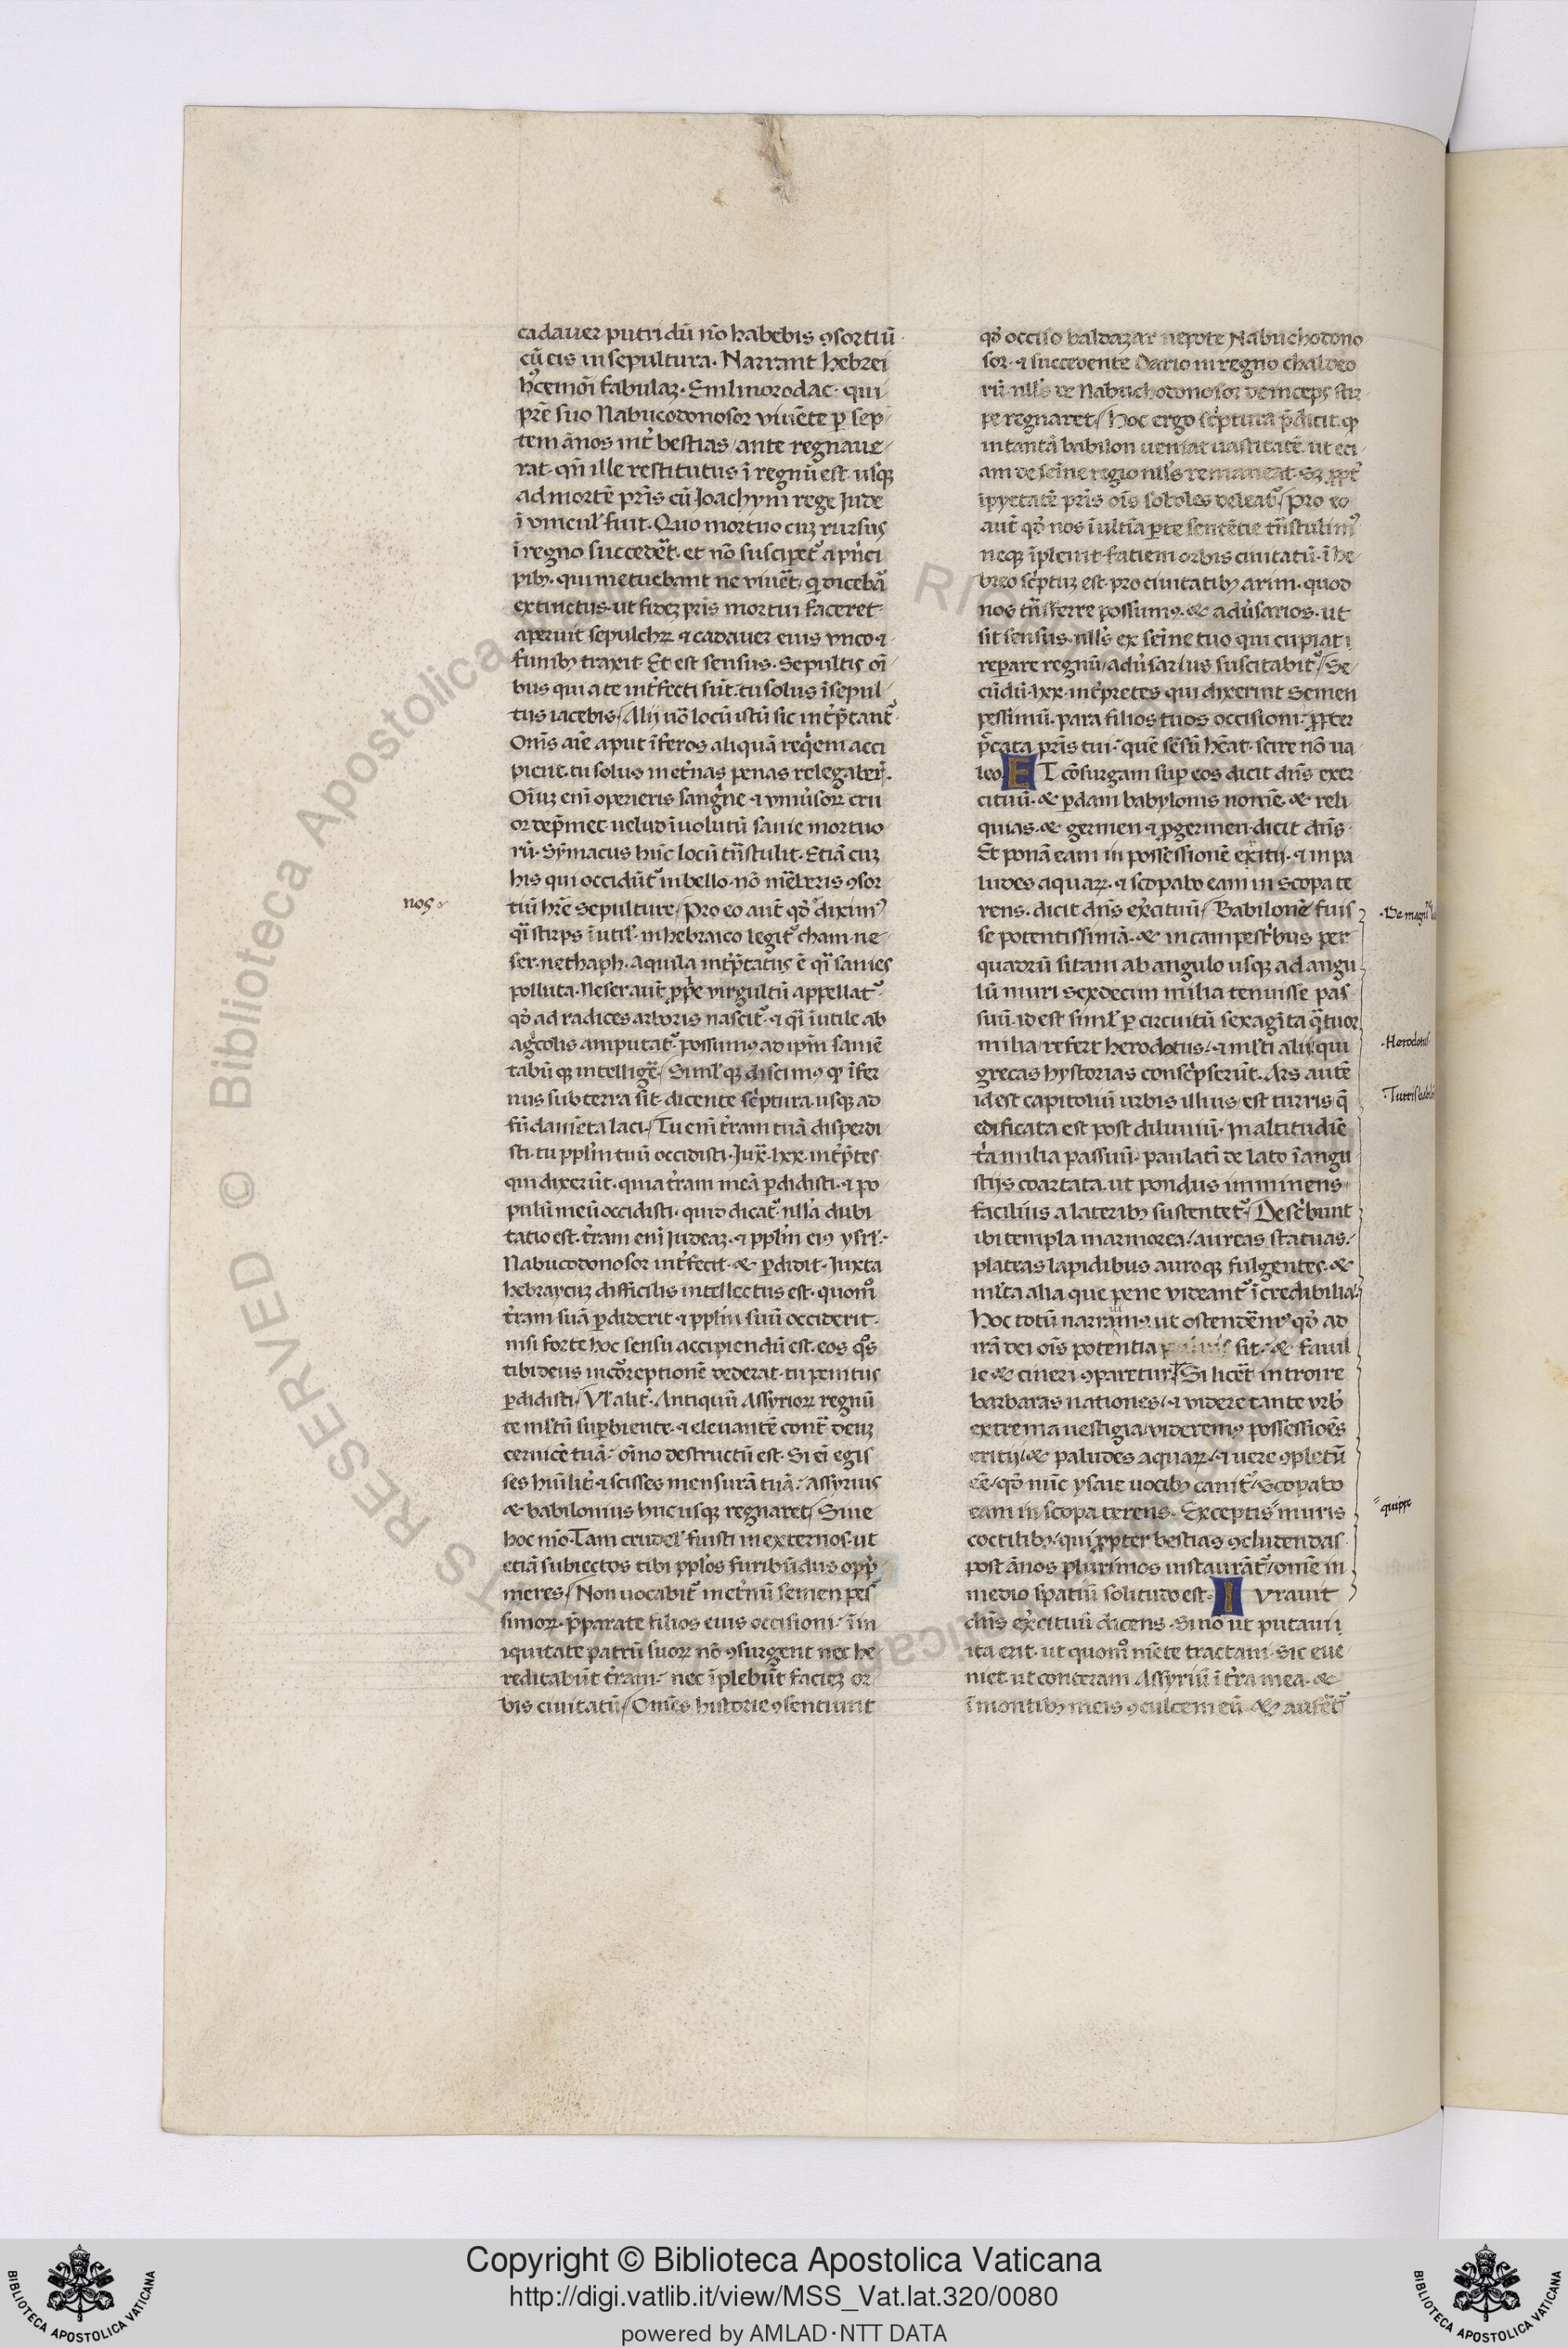 cadauer putridũ nõ habebis ꝯsortiũ
cũ eis in sepultura. Narrant hebrei
hꝰcemõi fabulaȝ. Emlinorodac. qui
prẽ suo Nabucodonosor viuẽte ꝑ sep
tem ãnos int̉ bestias / ante regnaue
rat. qñ ille restitutus ĩ regnũ est. usqȝ
ad mortẽ pr̃is cũ Joachym rege Jude
ĩ vincul̉ fuit. Quo mortuo cuȝ rursus
ĩ regno succedẽt. et nõ suscipet᷑ a pñci
pibȝ. qui metuebant ne viuẽt. qͥ dicebat᷑
extinctus. ut fideȝ pr̃is mortui faceret
aperuit sepulchꝝ ⁊ cadauer eius vnco ⁊
funibȝ traxit. Et est sensus. Sepultis oĩ
bus qui a te int̉fecti sũt. tu solus ĩsepul
tus iacebis / Alij nõ locũ istũ sic int̉p̃tant᷑.
Om̃s aĩe aput ĩferos aliquã reqͥem acci
piẽt. tu solus in et̉nas penas relegaber̉.
Oĩuȝ eni operieris sangͥne ⁊ vniũsoꝝ cru
or dep̃met. uelud ĩuolutũ sanie mortuo
rũ. Sỹmacus hũc locũ tñstulit. Etiã cuȝ
his qui occidũt᷑ in bello. nõ mẽberis ꝯsor
tiũ hr̃e sepulture / Pro eo aut̃ qd̉ diximꝰ
qͣi stirps ĩutil̉. in hebraico legit᷑ cham ne
ser. nethaph. Aquila int̉p̃tatus ẽ qͣi sanies
polluta. Neser aut̃ ꝓpͥe virgultũ appellat᷑.
qd̉ ad radices arboris nascit᷑. ⁊ qͣi ĩutile ab
agͥcolis amputat᷑. possumꝰ ad ip̃m saniẽ
tabũqȝ intelligẽ / Siml̉qȝ discimꝰ ꝙ ĩfer
nus sub terra sit. dicente sc̉ptura. usqȝ ad
fũdamẽta laci / Tu eni t̉ram tuã disperdi
sti. tu ppl̃m tuũ occidisti. Jux̃. lxx. int̉p̃tes
qui dixerũt. quia t̉ram meã ꝑdidisti. ⁊ po
pulũ meũ occidisti. quid dicat᷑. nll̉a dubi
tatio est. t̉ram eni Judeaȝ. ⁊ ppl̃m eiꝰ ysrl̃.
Nabucodonosor int̉fecit. & ꝑdidit. Juxta
hebraycuȝ difficilis intellectus est. quom̊
t̉ram suã ꝑdiderit ⁊ ppl̃m suũ occiderit.
nisi forte hoc sensu accipiendũ est. eos qͦs
tibi deus in coͬreptionẽ dederat. tu penitus
ꝑdidisti / Vl̉ alit̉. Antiquũ Assyrioꝝ regnũ
te ml̉tũ suꝑbiente. ⁊ eleuantẽ cont̃ deuȝ
ceruicẽ tuã. oĩno destructũ est. Si ei egis
ses hũilit̉ ⁊ scisses mensurã tuã. Assyrius
& babilonius hucusqȝ regnaret / Siue
hoc mõ. Tam crudel̉ fuisti in externos. ut
etiã subiectos tibi ppl̉os furibũdus opp̉
meres / Non uocabit᷑ in et̉nũ semen pes
simoꝝ. p̃parate filios eius occisioni. ĩ in
iquitate patrũ suoꝝ nõ ꝯsurgent nec he
reditabũt t̉ram. nec ĩplebũt facieȝ or
bis ciuitatũ / Om̃s historie ꝯsentiunt
nos
qd̉ occiso baldazar nepote Nabuchodono
sor. ⁊ succedente Dario in regno chaldeo
rũ. nll̉s de Nabuchodonosor deinceps stir
pe regnaret / Hoc ergo sc̉ptura p̃dicit. ꝙ
in tantã babilon ueniat uastitatẽ. ut eci
am de seĩne regio nll̉s remaneat. sȝ ꝓpt̉
ipyetatẽ pr̃is oĩs soboles deleat᷑ / Pro eo
aut̃ qd̉ nos ĩ ultĩa ꝑte sentẽtie tñstulimꝰ
neqȝ ĩpleuit faciem orbis ciuitatũ. ĩ he
breo sc̉ptuȝ est. pro ciuitatibȝ arim. quod
nos tñsferre possumꝰ. & adũsarios. ut
sit sensus. nll̉s ex seĩne tuo qui cupiat i
reparare regnũ / adũsarius suscitabit᷑ / Se
cũdũ. lxx. int̉pretes qui dixerũt. Semen
pessimũ. para filios tuos occisioni. ꝓpter
p̃cata pr̃is tui. quẽ sẽsũ hẽat. scire nõ ua
leo. ET cõsurgam suꝑ eos dicit dñs exer
cituũ. & ꝑdam babylonis nomẽ. & reli
quias. & germen ⁊ ꝓgermen dicit dñs.
Et ponã eam in possessionẽ exitij. ⁊ in pa
ludes aquaꝝ. ⁊ scopabo eam in scopa te
rens. dicit dñs ex̉cituũ / Babilonẽ fuis
se potentissimã. & in campest̉bus per
quadrũ sitam ab angulo usqȝ ad angu
lũ muri sexdecim milia tenuisse pas
suũ. id est siml̉ ꝑ circuitũ sexagĩta qͣtuor
milia / refert herodotus. ⁊ ml̉ti alij qui
grecas hystorias consc̉pserũt. Ars autẽ
id est capitoliũ urbis illius est turris q̃
edificata est post diluuiũ. in altitudiẽ
t̉a milia passuũ. paulatĩ de lato ĩ angu
stijs coartata. ut pondus imminens
facilius a lateribȝ sustentet᷑ / Desc̉bunt
ibi templa marmorea / aureas statuas.
plateas lapidibus auroqȝ fulgentes. &
ml̉ta alia que pene videant᷑ ĩcredibilia.
Hoc totũ narramꝰ. ut ostendẽm᷑ qd̉ ad
irã dei oĩs potentia sit. & fauil
le & cineri ꝯparetur / Si licẽt introire
barbaras nationes. ⁊ videre tante vrb̉
extrema uestigia / videremꝰ possessiões
eritij. & paludes aquaꝝ. ⁊ uere ꝯpletũ
eẽ / qd̉ nũc ysaie uocibȝ canit᷑ / Scopabo
eam in scopa terens. Exceptis muris
coctilibȝ / qui ꝓpter bestias ꝯcludendas
post ãnos plurimos instaurãt᷑ / omẽ in
medio spatiũ solitudo est. IVrauit
dñs ex̉cituũ dicens. Si nõ ut putaui
ita erit. ut quom̊ mẽte tractaui. sic eue
niet. ut conteram Assyriũ ĩ t̉ra mea. &
ĩ montibȝ meis ꝯculcem eũ. & aufẽt᷑
Herodotus
quippe
Copyright © Biblioteca Apostolica Vaticana
http://digi.vatlib.it/view/MSS_Vat.lat.320/0080
powered by AMLAD·NTT DATA
BIBLIOTECA APOSTOLICA VATICANA
BIBLIOTECA APOSTOLICA VATICANA